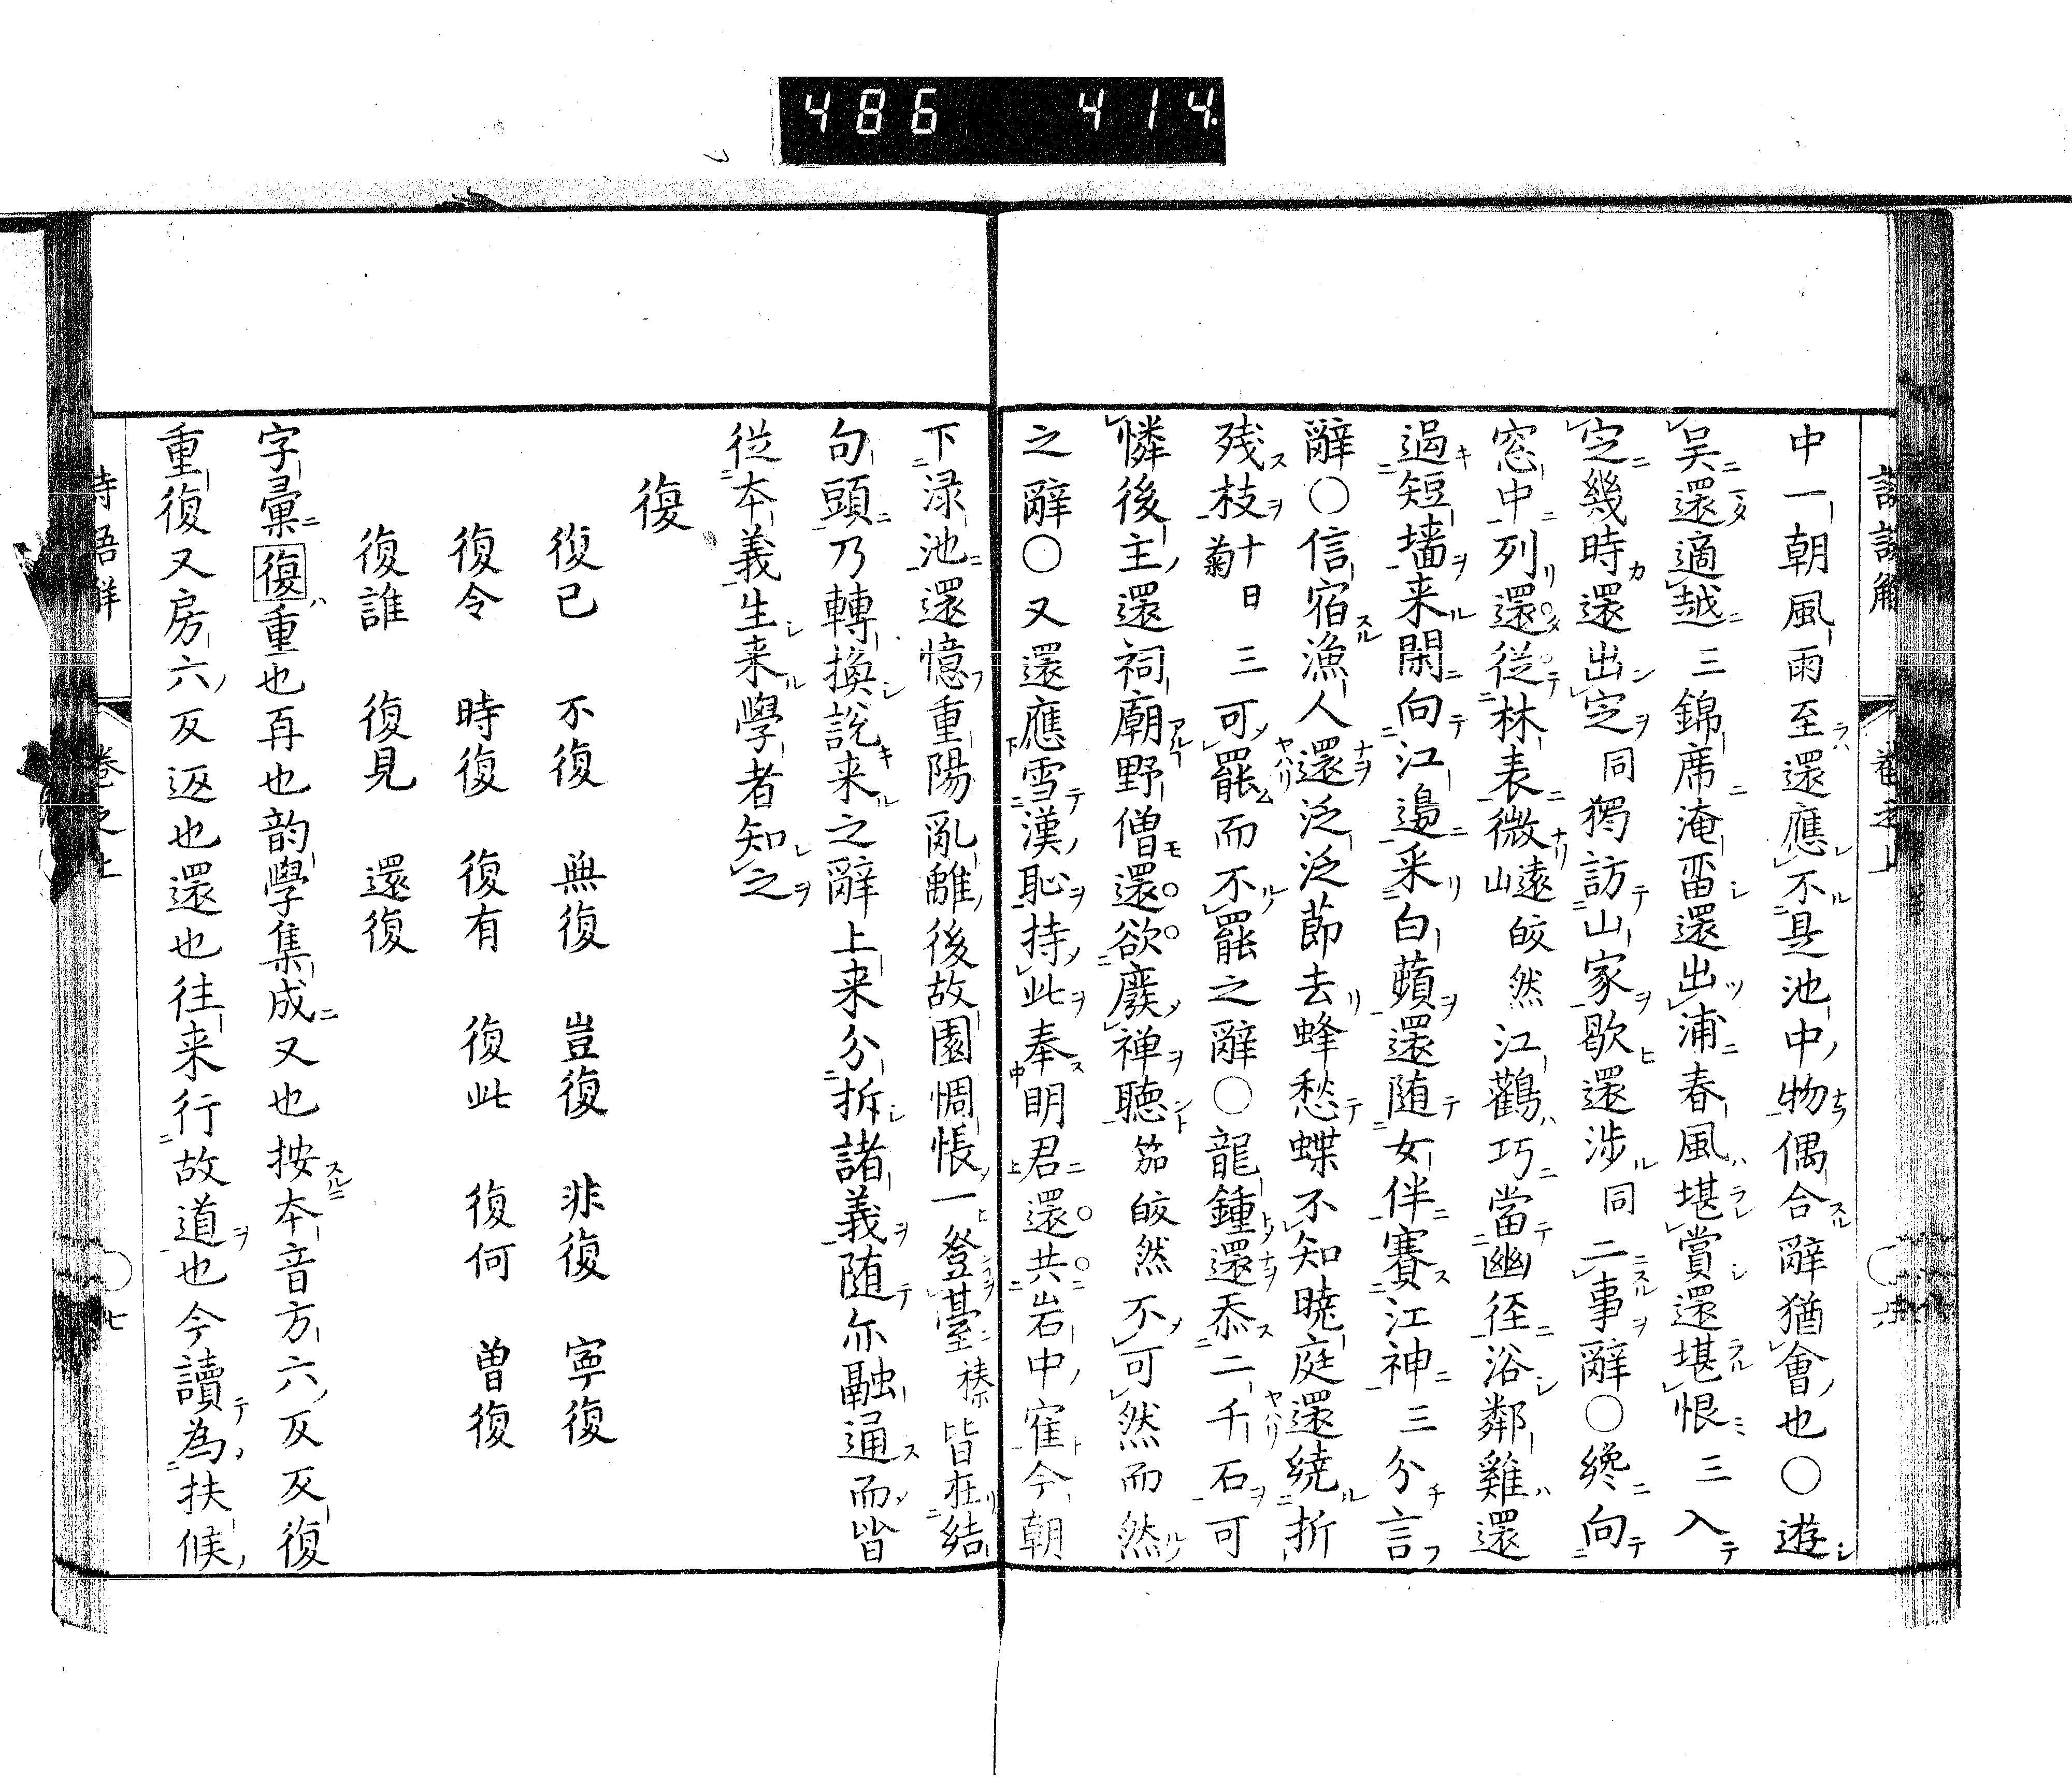 486 414
中一朝風雨至還應不是池中物偶合辭猶會也〇遊
吳還適越三錦席淹留還出浦春風堪賞還堪恨三入
定幾時還出定同獨訪山家歇還涉同二事辭〇纔向
窓中列還從林表微遠山皎然江鸛巧當幽徑浴鄰雞還
過短墻来閑向江邊采白蘋還随女伴賽江神三分言
辭〇信宿漁人還泛泛節去蜂愁蝶不知曉庭還繞折
残枝十日菊三可罷而不罷之辭〇龍鍾還忝二千石可
憐後主還祠廟野僧還欲廢禅聴笳皎然不可然而然
之辭〇又還應雪漢恥持此奉明君還共岩中隺今朝
下渌池還憶重陽亂離後故園惆悵一登臺榛皆在結
句頭乃轉換說来之辭上来分拆諸義随亦融通而皆
從本義生来學者知之
復
復已 不復 無復 豈復 非復 寧復
復令 時復 復有 復此 復何 曽復
復誰 復見 還復
字彙復重也再也韵學集成又也按本音方六反反復
重復又房六反返也還也往来行故道也今讀為扶候
卷之上 七